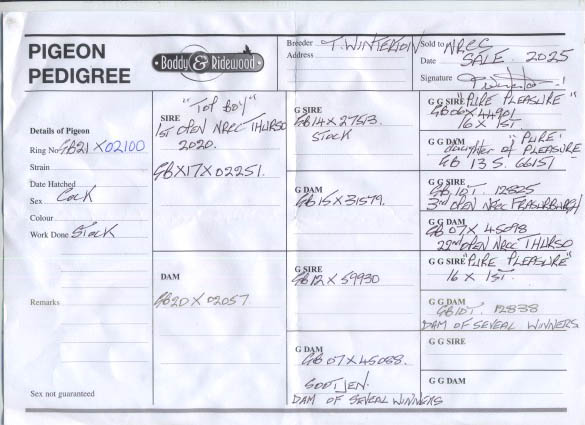 PIGEON
PEDIGREE
Boddy & Ridewood
Breeder T. WINTERTON
Address
Sold to NRCC
SALE 2025
Date
Signature
Details of Pigeon
Ring No GB21 X 02100
Strain
Date Hatched
Sex Cock
Colour
Work Done Stock
Remarks
Sex not guaranteed
"TOP BOY"
SIRE
1st OPEN NRCC THURSO
2020.
GBX17X02251.
DAM
GB20X02057.
G SIRE
GB14X27513.
Stock
G DAM
GB15X31579.
G SIRE
GB12X59930
G DAM
GB 07X45088.
DAM OF SEVERAL WINNERS
G G SIRE "PURE PLEASURE"
GB06X44901
16 X 1ST
G G DAM "PURE"
daughter of PLEASURE
GB 13 S. 66151
G G SIRE
GB 10T. 12825
3rd OPEN NRCC FRASERBURGH
G G DAM
GB 07X 45098
22nd OPEN NRCC THURSO
G G SIRE "PURE PLEASURE"
16 X 1ST.
G G DAM
GB10T. 12838
DAM OF SEVERAL WINNERS
G G SIRE
G G DAM